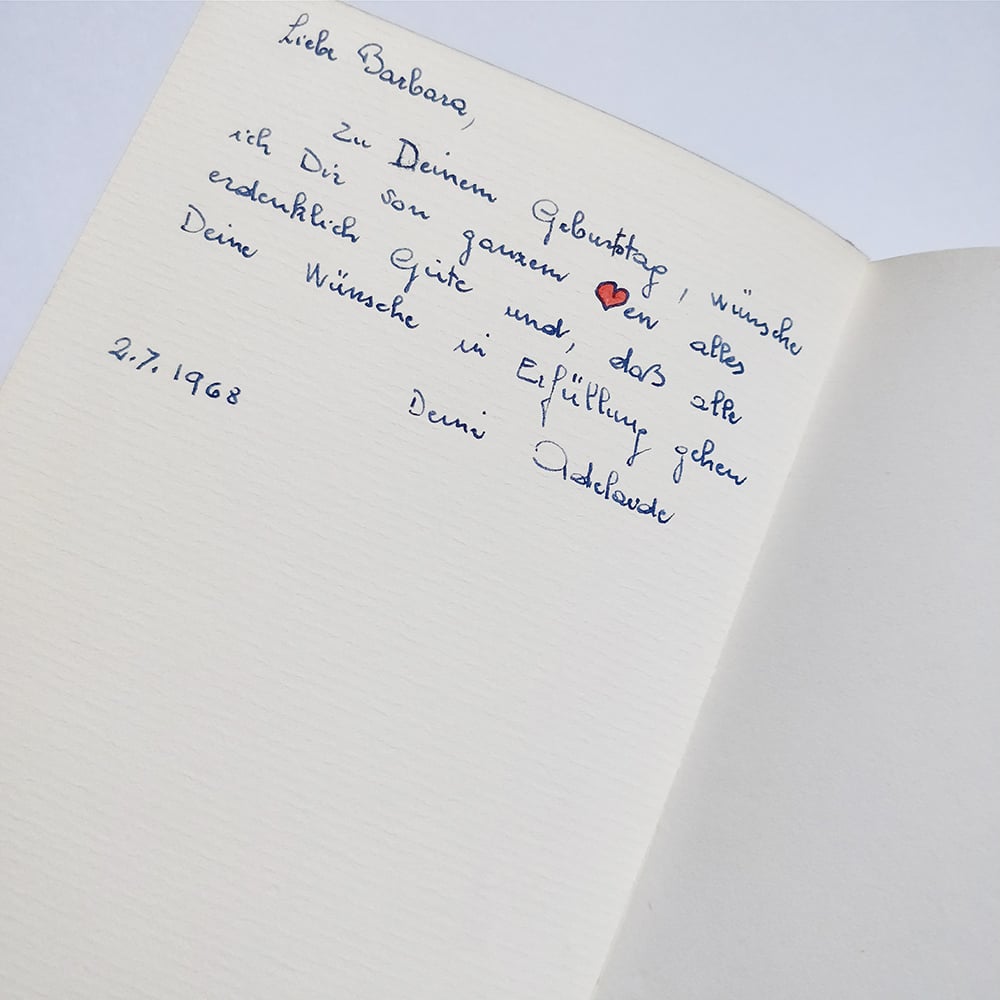 Liebe Barbara,
Zu Deinem Geburtstag, wünsche
ich Dir von ganzem ❤en alles
erdenklich Gute und, daß alle
Deine Wünsche in Erfüllung gehen
Deine
Adelaide
2.7.1968